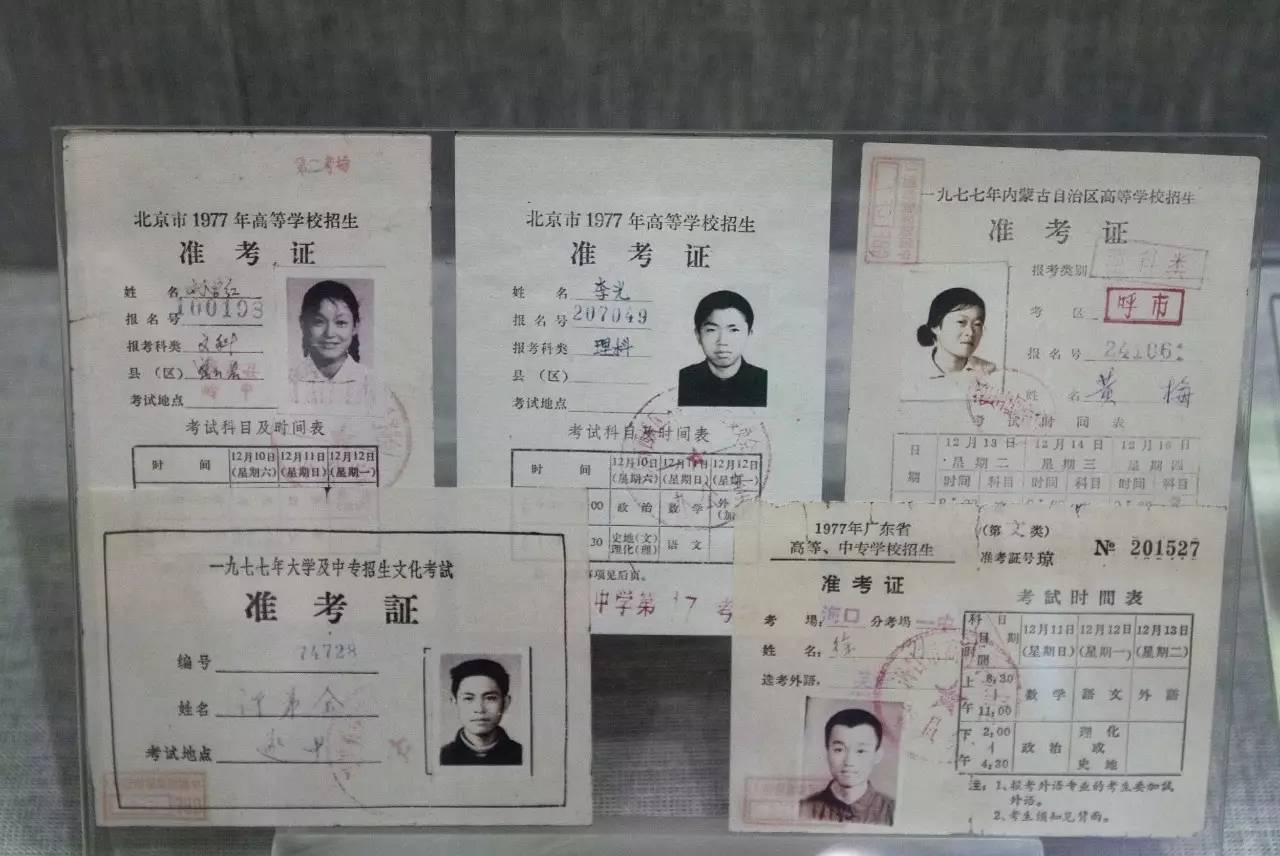 第二考场
北京市1977年高等学校招生
准考证
姓 名
报名号 100193
报考科类 文科
县（区）
考试地点
考试科目及时间表
时 间 12月10日（星期六） 12月11日（星期日） 12月12日（星期一）
北京市1977年高等学校招生
准考证
姓 名 李光
报名号 207049
报考科类 理科
县（区）
考试地点
考试科目及时间表
时 间 12月10日（星期六） 12月11日（星期日） 12月12日（星期一）
00 政治 数学 外
30 史地（文）理化（理） 语文
事项见后页。
中学第 17 考
一九七七年内蒙古自治区高等学校招生
准考证
报考类别
考 区 呼市
报名号
姓 名 黄梅
考试时间表
日期 12月13日 星期二 12月14日 星期三 12月15日 星期四
时间 科目 时间 科目 时间 科目
一九七七年大学及中专招生文化考試
准考証
编号 74728
姓名
考试地点
1977年广东省
高等、中专学校招生
准考证
（第文类）
准考证号琼 № 201527
考場：海口 分考場 一中
姓名：徐
选考外語：
考試时間表
科目 日期 时間 12月11日（星期日） 12月12日（星期一） 12月13日（星期二）
上午 8,30 11,00 数学 語文 外語
下午 2,00 4,30 政治 理化或史地
注：1、报考外语专业的考生要加試
外语。
2、考生须知见背面。